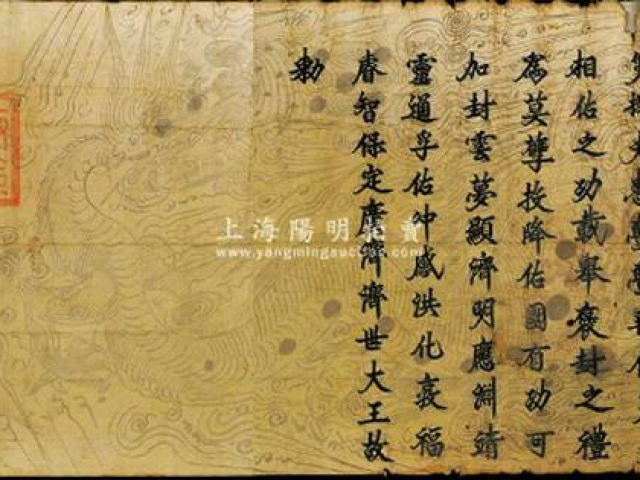 相佑之功載舉褒封之禮
為莫孽投降佑國有功可
加封雲夢顯濟明應淵靖
靈通孚佑冲感洪化衰福
睿智保定廣濟濟世大王故
勅
上海陽明拍賣
www.yangmingauction.com